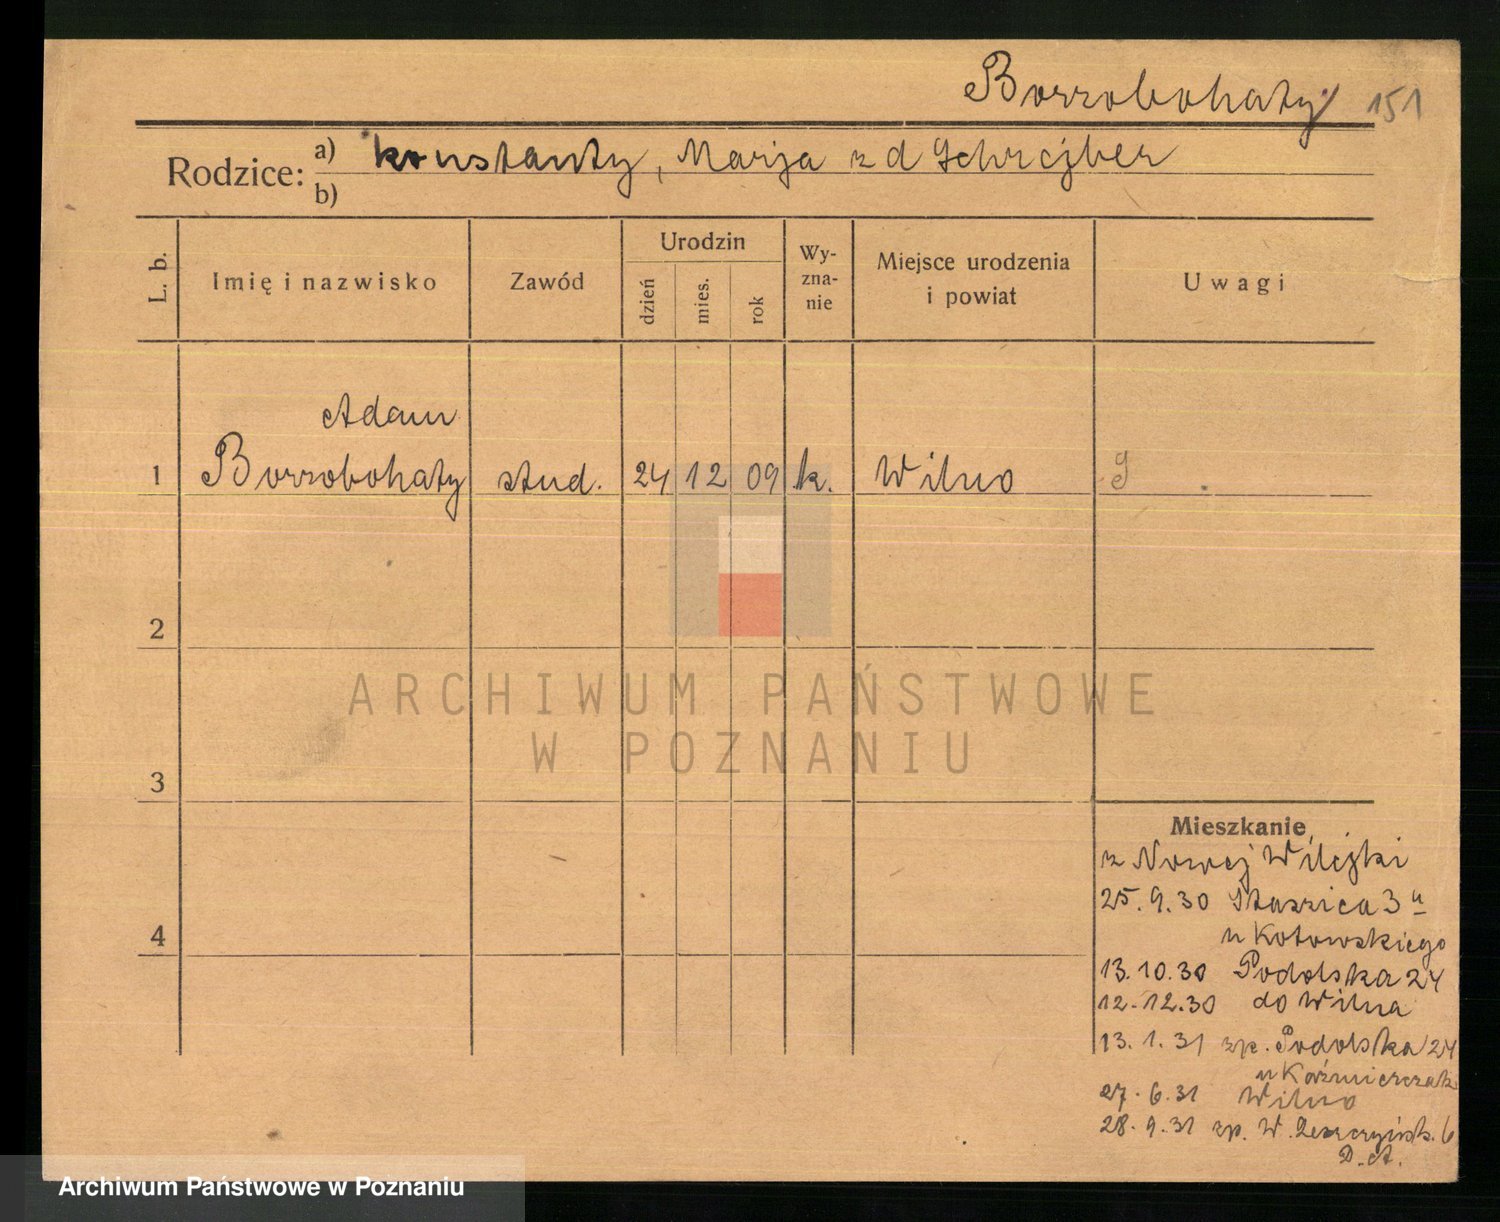 Borrobohaty 151
Rodzice: a) Konstanty, Marja z d Schrejber
b)
L. b. Imię i nazwisko Zawód Urodzin dzień mies. rok Wy-zna-nie Miejsce urodzenia i powiat Uwagi
Adam
1 Borrobohaty stud. 24 12 09 k. Wilno
2
ARCHIWUM PAŃSTWOWE
W POZNANIU
3
Mieszkanie
z Nowej Wilejki
25.9.30 Staszica 3
4
u Kotowskiego
13.10.30 Podolska 24
12.12.30 do Wilna
13.1.31 zp. Podolska 24
u Kaźmierczak
27.6.31 Wilno
28.9.31 zp. W. Leszczyńsk. 6
D.A.
Archiwum Państwowe w Poznaniu